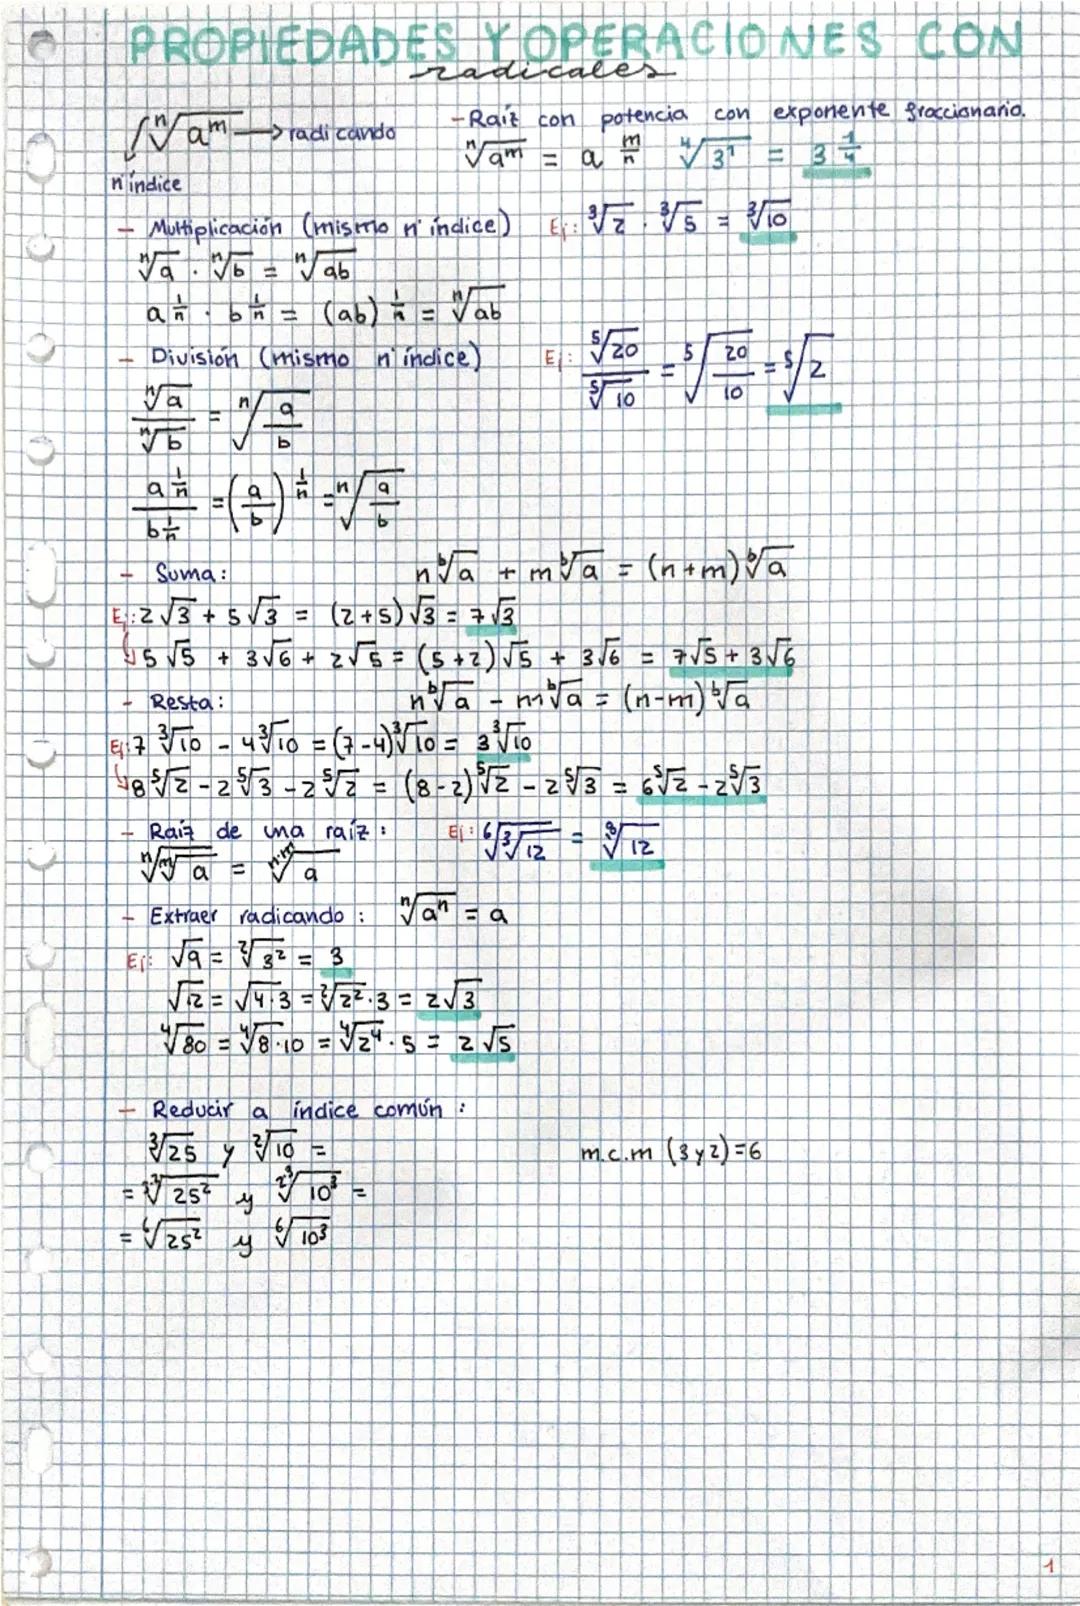 PROPIEDADES Y OPERACIONES CON
radicales
ⁿ√aᵐ → radicando
nº índice
- Raíz con potencia con exponente fraccionario.
ⁿ√aᵐ = a^(m/n) ⁴√3¹ = 3^(1/4)
- Multiplicación (mismo nº índice) Ej: ³√2 · ³√5 = ³√10
ⁿ√a · ⁿ√b = ⁿ√ab
a^(1/n) · b^(1/n) = (ab)^(1/n) = ⁿ√ab
- División (mismo nº índice) Ej: ⁵√20 / ⁵√10 = ⁵√(20/10) = ⁵√2
ⁿ√a / ⁿ√b = ⁿ√(a/b)
a^(1/n) / b^(1/n) = (a/b)^(1/n) = ⁿ√(a/b)
- Suma: n ᵇ√a + m ᵇ√a = (n+m) ᵇ√a
Ej: 2√3 + 5√3 = (2+5)√3 = 7√3
5√5 + 3√6 + 2√5 = (5+2)√5 + 3√6 = 7√5 + 3√6
- Resta: n ᵇ√a - m ᵇ√a = (n-m) ᵇ√a
Ej: 7 ³√10 - 4 ³√10 = (7-4) ³√10 = 3 ³√10
8 ⁵√2 - 2 ⁵√3 - 2 ⁵√2 = (8-2) ⁵√2 - 2 ⁵√3 = 6 ⁵√2 - 2 ⁵√3
- Raíz de una raíz: Ej: ⁶√³√12 = ⁸√12
ⁿ√ᵐ√a = ⁿ·ᵐ√a
- Extraer radicando: ⁿ√aⁿ = a
Ej: √9 = ²√3² = 3
√12 = √4·3 = ²√2²·3 = 2√3
⁴√80 = ⁴√8·10 = ⁴√2⁴·5 = 2√5
- Reducir a índice común:
³√25 y ²√10 = m.c.m (3 y 2) = 6
= ³·²√25² y ²·³√10³ =
= ⁶√25² y ⁶√10³
1